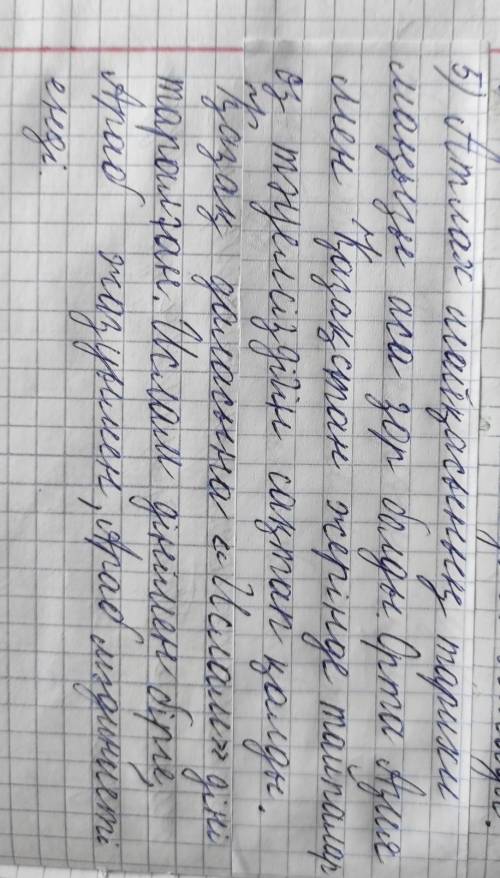 5) Атлах шайқасының тарихи
маңызы аса зор болды. Орта Азия
мен Қазақстан жерінде тайпалар
өз тәуелсіздігін сақтап қалды.
Қазақ даласына "Ислам" діні
таралған. Ислам дінімен бірге,
Араб жазуымен, Араб мәдениеті
енді.